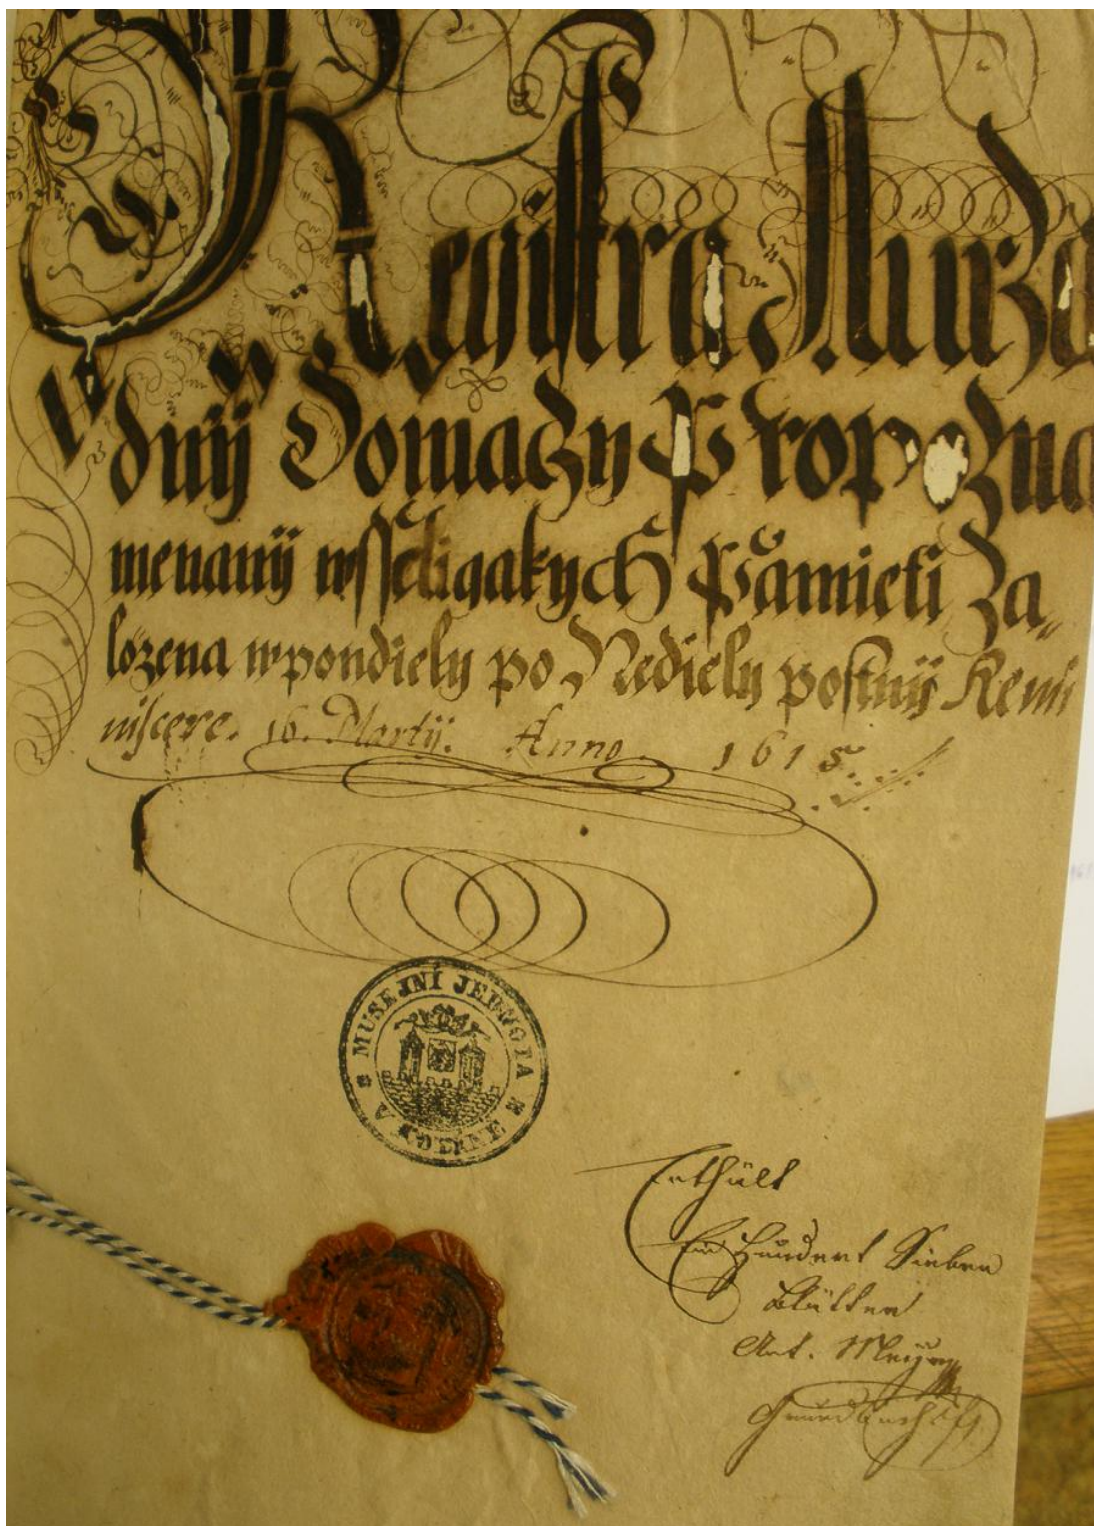 Registra Aurza
dnij Domaczy Pro poZna
menanij wsselijakych Pamieti Za„
lozena w pondiely po Nediely postnij Remi
niscere. 16. Martij. Anno 1615.
MUSEJNÍ JEDNOTA
V KOLÍNĚ
Enthält
Ein Hundert Sieben
Blätter
Ant. Meijer